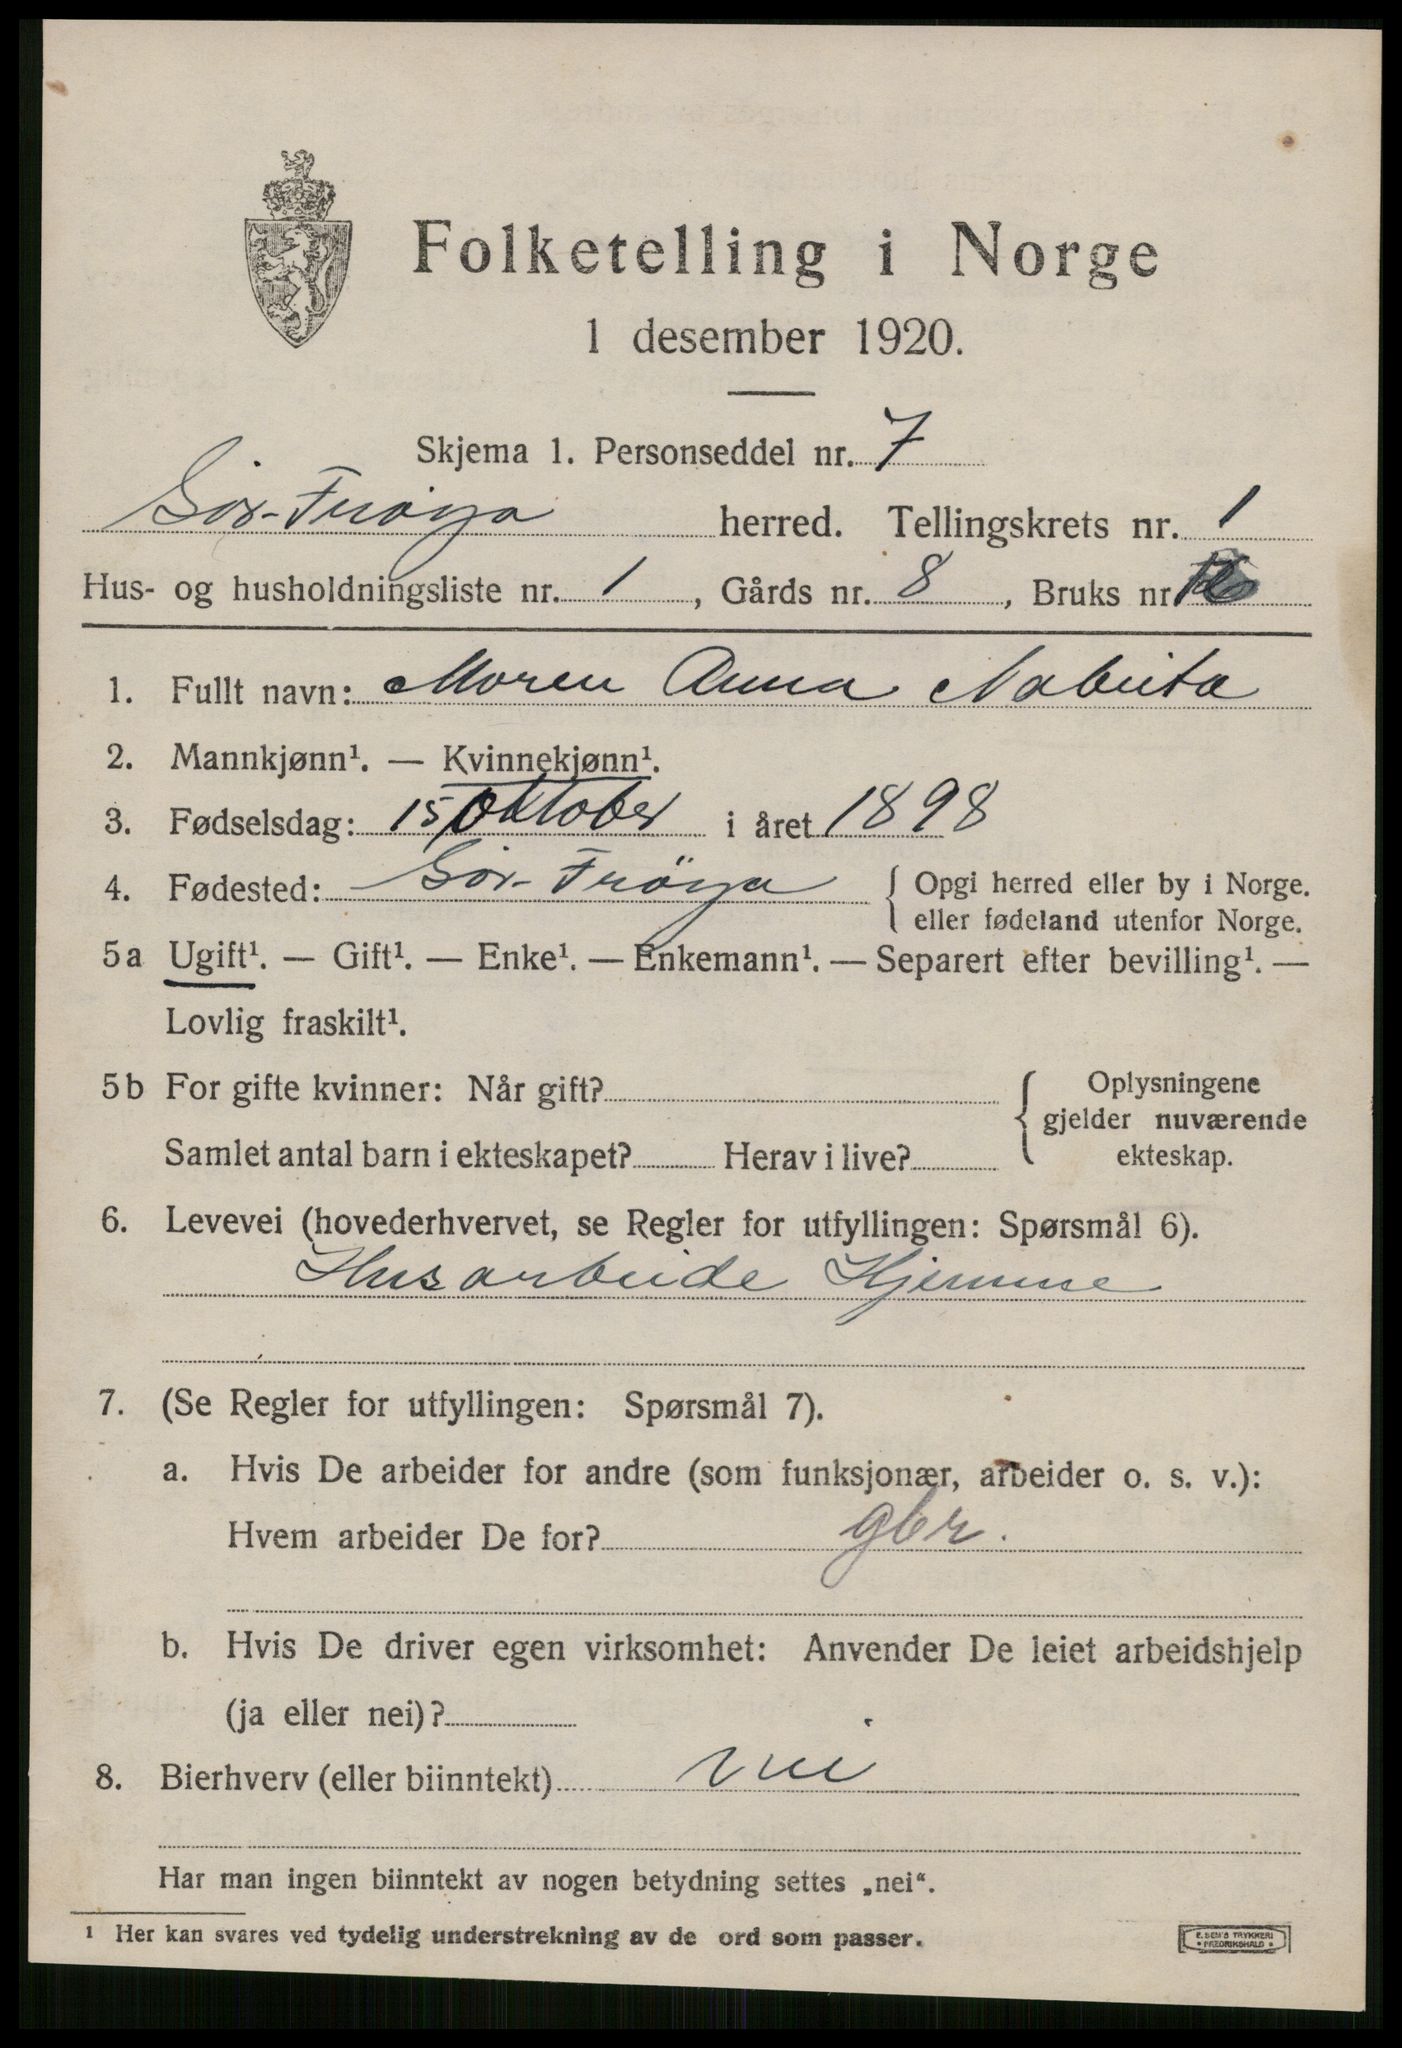 Folketelling i Norge
1 desember 1920.
Skjema 1. Personseddel nr. 7
Sör-Fröya herred. Tellingskrets nr. 1
Hus- og husholdningsliste nr. 1, Gårds nr. 8, Bruks nr.
1. Fullt navn: Moren Anna Nabeita
2. Mannkjønn¹. — Kvinnekjønn¹.
3. Fødselsdag: 15/Oktober i året 1898
4. Fødested: Sör-Fröya { Opgi herred eller by i Norge.
eller fødeland utenfor Norge.
5a Ugift¹. — Gift¹. — Enke¹. — Enkemann¹. — Separert efter bevilling¹. —
Lovlig fraskilt¹.
5b For gifte kvinner: Når gift? { Oplysningene
gjelder nuværende
Samlet antal barn i ekteskapet? Herav i live? ekteskap.
6. Levevei (hovederhvervet, se Regler for utfyllingen: Spørsmål 6).
Husarbeide Hjemme
7. (Se Regler for utfyllingen: Spørsmål 7).
a. Hvis De arbeider for andre (som funksjonær, arbeider o. s. v.):
Hvem arbeider De for? gbr.
b. Hvis De driver egen virksomhet: Anvender De leiet arbeidshjelp
(ja eller nei)?
8. Bierhverv (eller biinntekt) nei
Har man ingen biinntekt av nogen betydning settes „nei“.
¹ Her kan svares ved tydelig understrekning av de ord som passer.
E. SEM'S TRYKKERI
• FREDRIKSHALD •